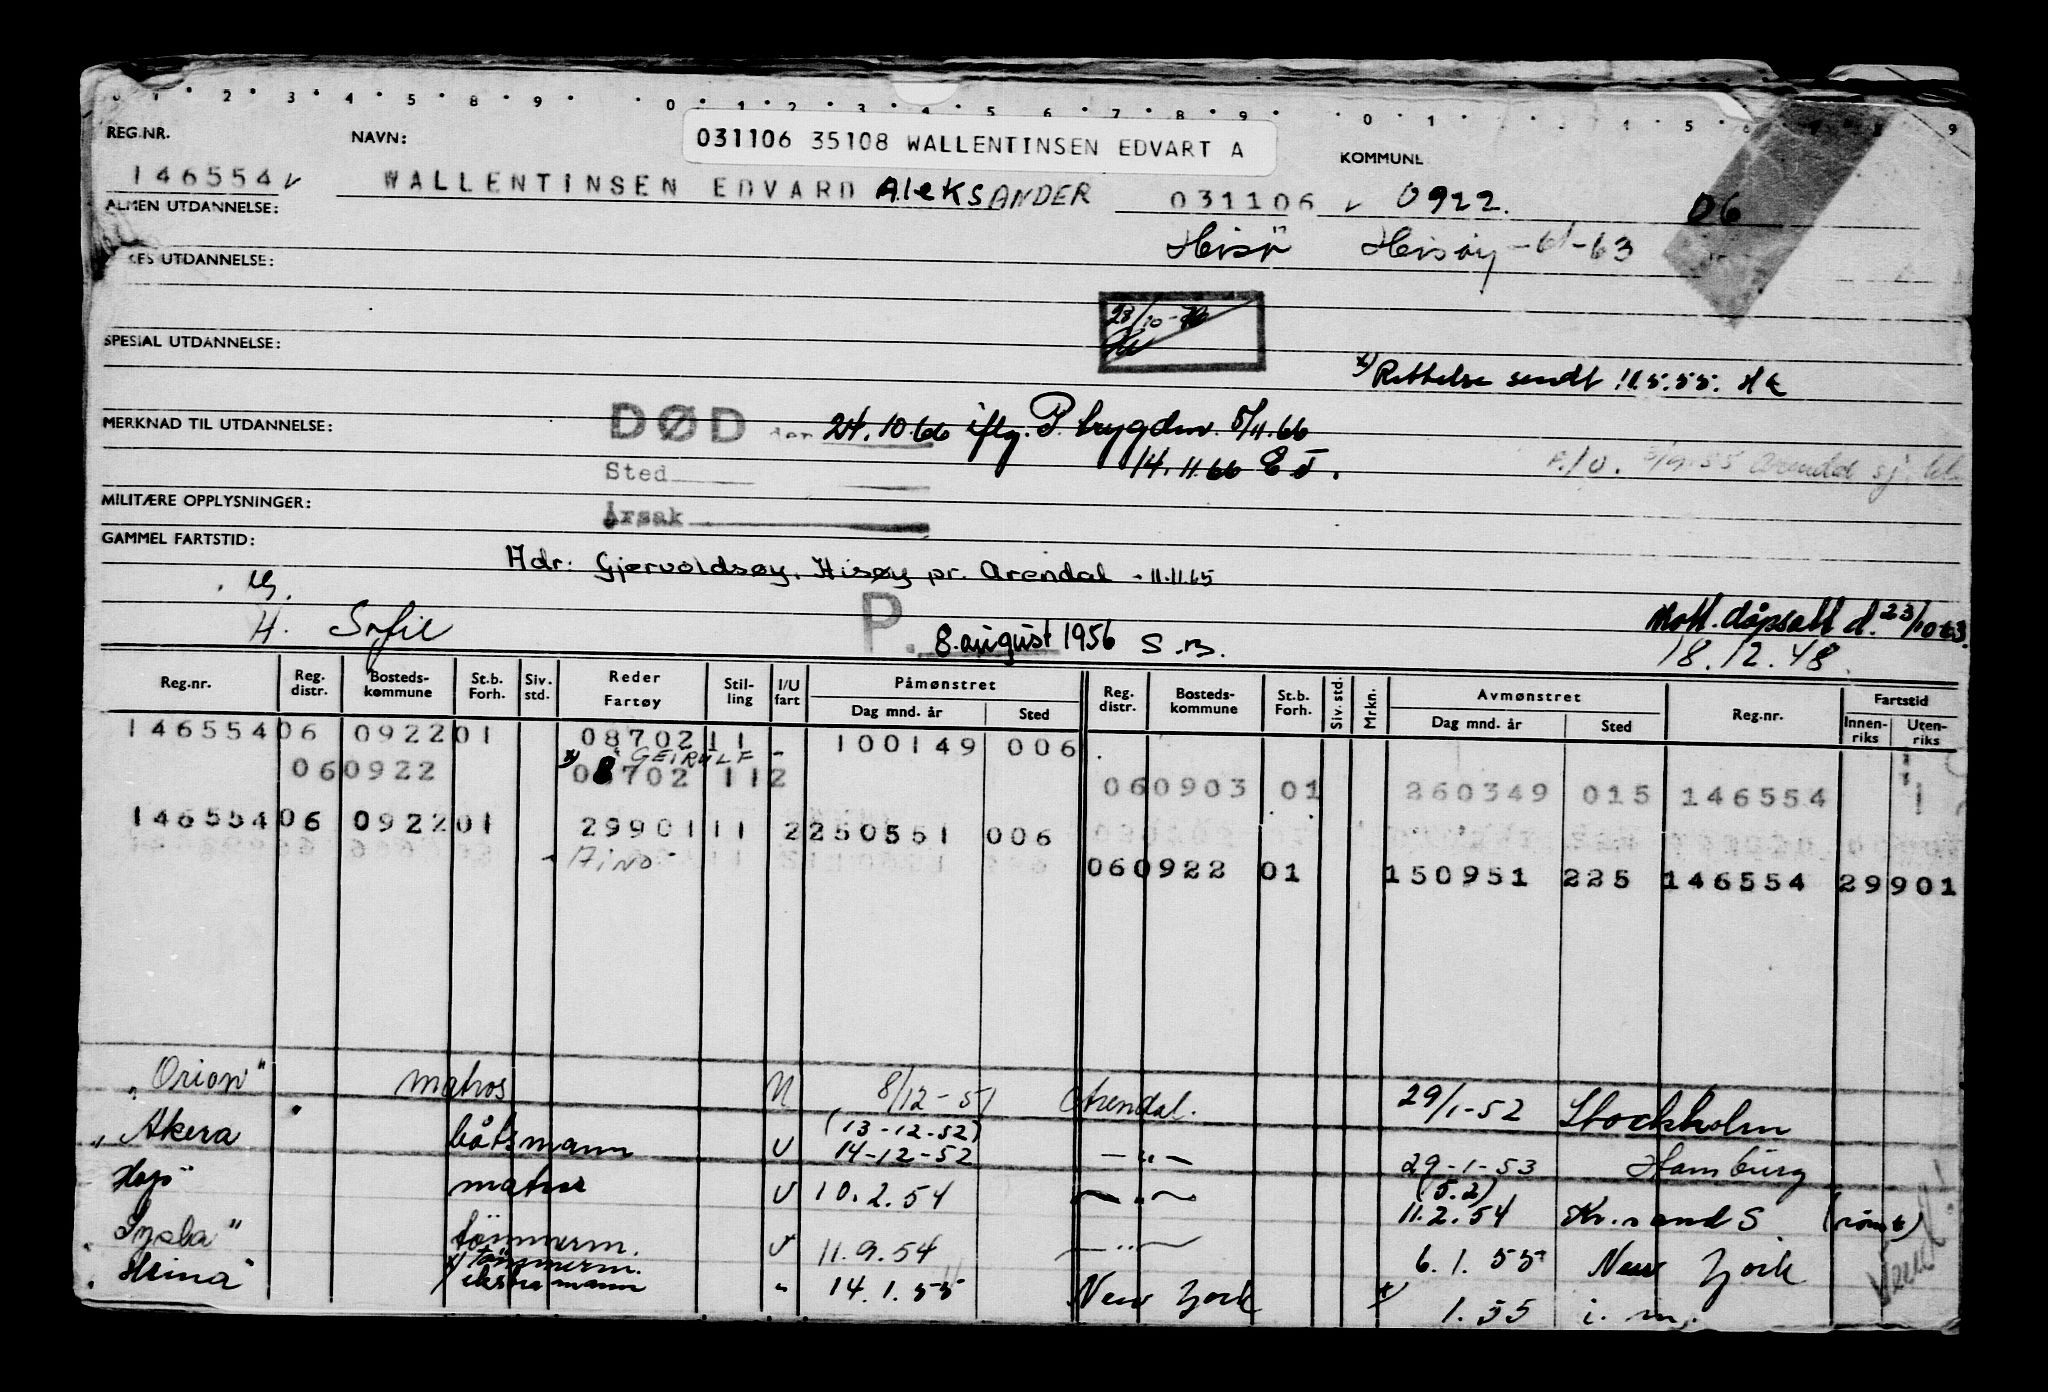 0 1 2 3 4 5 8 9 0 1 2 3 4 5 6 7 8 9 0 1 4 5 6 9
REG.NR. NAVN: 031106 35108 WALLENTINSEN EDVART A KOMMUNE
146554 WALLENTINSEN EDVARD ALEKSANDER 031106 0922. 06
ALMEN UTDANNELSE: Hisö Hisøy -61-63
UTDANNELSE:
28/10-
SPESIAL UTDANNELSE:
x) Rettelse sendt 11.5.55. HE
MERKNAD TIL UTDANNELSE: DØD den 24.10.66 iflg. P. trygden. 5/11.66
Sted 14.11.66 E J.
55 Arendal sj.
MILITÆRE OPPLYSNINGER: Årsak
GAMMEL FARTSTID:
Adr: Gjervoldsøy, Hisøy pr. Arendal - 11.11.65
Ug.
H. Sofie P. 8. august 1956 S.B.
Mott. dåpsatt d. 23/10 63.
18.12.48.
Reg.nr. Reg. distr. Bosteds-kommune St.b. Forh. Siv. std. Reder Fartøy Stil-ling I/U fart Påmønstret Dag mnd. år Sted Reg. distr. Bosteds-kommune St.b. Forh. Siv. std. Mrkn. Avmønstret Dag mnd. år Sted Reg.nr. Fartstid Innen-riks Uten-riks
146554 06 0922 01 08702 11 - 100149 006
x) "GEIRULF
06 0922 08702 11 2 06 0903 01 260349 015 146554
146554 06 0922 01 29901 11 2 250551 006
Aino
06 0922 01 150951 225 146554 29901
"Orion" matros U 8/12-51 Arendal. 29/1-52 Stockholm
(13-12-52)
"Akera båtsmann U 14-12-52 -"- 29-1-53 Hamburg
(5.2)
Høp" matros U 10.2.54 -"- 11.2.54 Kr.sand S (rømt)
tömmerm. U 11.9.54 -"- 6.1.55 New York
x) tömmerm.
"Heina" ekstramann " 14.1.55 New York x) 1.55 i. m.
Vend!